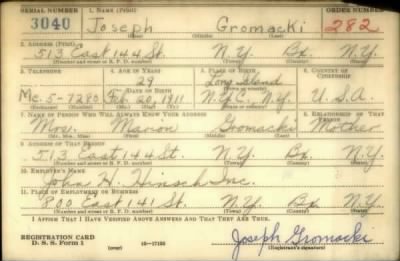 SERIAL NUMBER 1. NAME (Print) ORDER NUMBER
3040 Joseph Gromacki 282
(First) (Middle) (Last)
2. ADDRESS (Print)
513 East 144 St. N.Y. Bx. N.Y.
(Number and street or R. F. D. number) (Town) (County) (State)
3. TELEPHONE 4. AGE IN YEARS 5. PLACE OF BIRTH 6. COUNTRY OF CITIZENSHIP
29 Long Island
DATE OF BIRTH
Me. 5-7280 Feb. 20, 1911 N.Y.C. N.Y. U.S.A.
7. NAME OF PERSON WHO WILL ALWAYS KNOW YOUR ADDRESS 8. RELATIONSHIP OF THAT PERSON
Mrs. Marion Gromacki Mother
(Mr., Mrs., Miss) (First) (Middle) (Last)
9. ADDRESS OF THAT PERSON
513 East 144 St. N.Y. Bx. N.Y.
(Number and street or R. F. D. number) (Town) (County) (State)
10. EMPLOYER'S NAME
John H. Hinsch Inc.
11. PLACE OF EMPLOYMENT OR BUSINESS
800 East 141 St. N.Y. Bx. N.Y.
(Number and street or R. F. D. number) (Town) (County) (State)
I AFFIRM THAT I HAVE VERIFIED ABOVE ANSWERS AND THAT THEY ARE TRUE.
REGISTRATION CARD
D. S. S. Form 1 (over) 16—17105
Joseph Gromacki
(Registrant's signature)